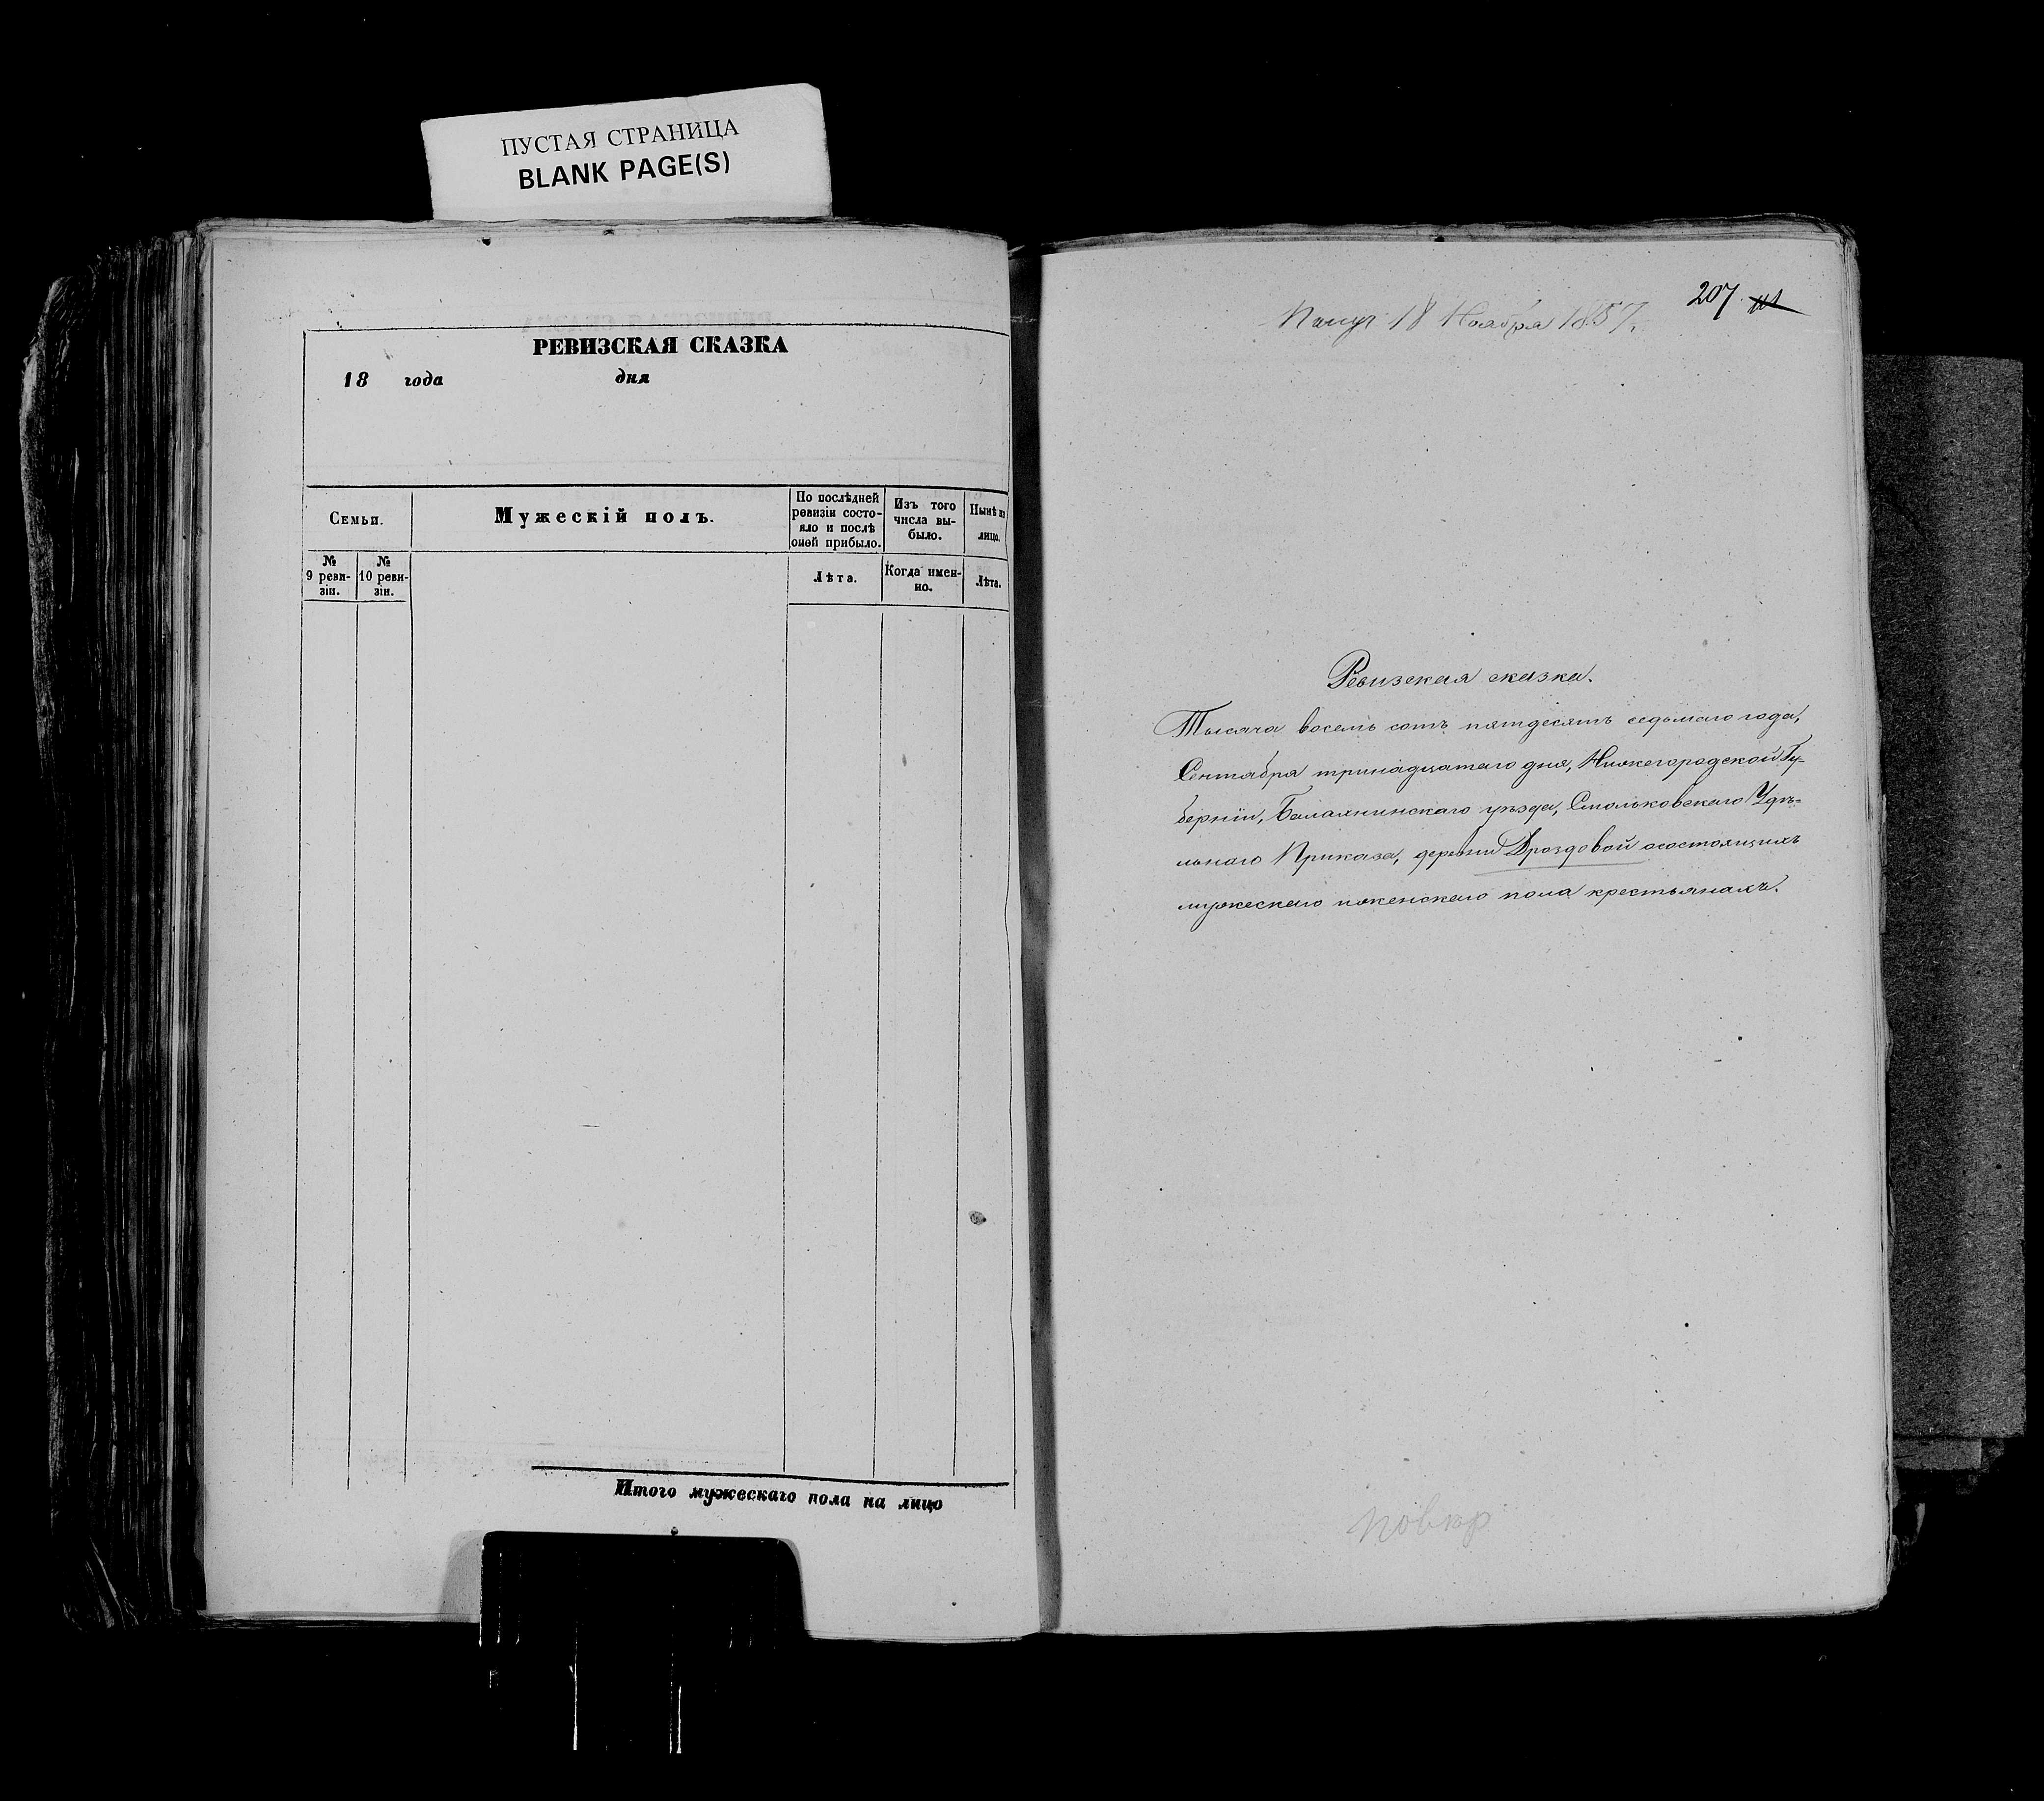 ПУСТАЯ СТРАНИЦА
BLANK PAGE(S)
РЕВИЗСКАЯ СКАЗКА
18 года дня
Семьи.
Мужескій полъ.
По послѣдней
ревизіи состо-
яло и послѣ
оной прибыло.
Изъ того
числа вы-
было.
Нынѣ на
лицо.
№
9 реви-
зіи.
№
10 реви-
зіи.
Лѣта.
Когда имен-
но.
Лѣта.
Итого мужескаго пола на лицо
207.
18 Ноября 1857.
Ревизская сказка.
Тысяча восемь сотъ пятдесятъ седьмаго года,
Сентября тринадцатаго дня, Нижегородской Гу-
берніи, Балахнинскаго уѣзда, Смольковскаго Удѣ-
льнаго Приказа, деревни Дроздовой осостоящихъ
мужескаго иженскаго пола крестьянахъ.